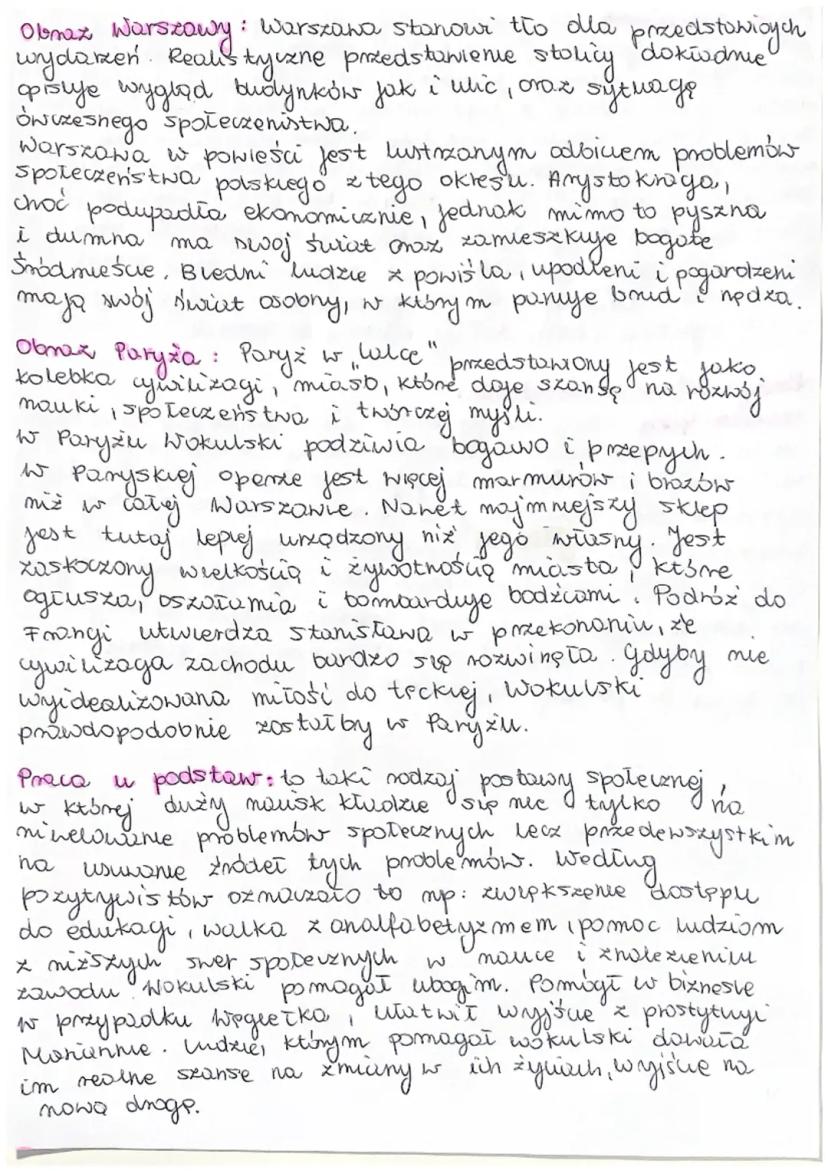 Obraz Warszawy: Warszawa stanowi tło dla przedstawionych
wydarzeń. Realistyczne przedstawienie stolicy dokładnie
opisuje wygląd budynków jak i ulic, oraz sytuację
ówczesnego społeczeństwa.
Warszawa w powieści jest lustrzanym odbiciem problemów
społeczeństwa polskiego z tego okresu. Arystokracja,
choć podupadła ekonomicznie, jednak mimo to pyszna
i dumna ma swój świat oraz zamieszkuje bogate
Śródmieście. Biedni ludzie z powiśla, upodleni i pogardzeni
mają swój świat osobny, w którym panuje brud i nędza.
Obraz Paryża: Paryż w „Lalce" przedstawiony jest jako
kolebka cywilizacji, miasto, które daje szansę na rozwój
nauki, społeczeństwa i twórczej myśli.
W Paryżu Wokulski podziwia bogactwo i przepych.
W Paryskiej operze jest więcej marmurów i brązów
niż w całej Warszawie. Nawet najmniejszy sklep
jest tutaj lepiej urządzony niż jego własny. Jest
zaskoczony wielkością i żywotnością miasta, które
ogłusza, oszołamia i bombarduje bodźcami. Podróż do
Francji utwierdza Stanisława w przekonaniu, że
cywilizacja zachodu bardzo się rozwinęła. Gdyby nie
wyidealizowana miłość do Łęckiej, Wokulski
prawdopodobnie zostałby w Paryżu.
Praca u podstaw: to taki rodzaj postawy społecznej,
w której duży nacisk kładzie się nie tylko na
niwelowanie problemów społecznych lecz przedewszystkim
na usuwanie źródeł tych problemów. Według
pozytywistów oznaczało to np: zwiększenie dostępu
do edukacji, walka z analfabetyzmem, pomoc ludziom
z niższych swer społecznych w nauce i znalezieniu
zawodu. Wokulski pomagał ubogim. Pomógł w biznesie
w przypadku Węgiełka, ułatwił wyjście z prostytucji
Mariannie. Ludzie, którym pomagał Wokulski dawała
im realne szanse na zmiany w ich życiach, wyjście na
nową drogę.